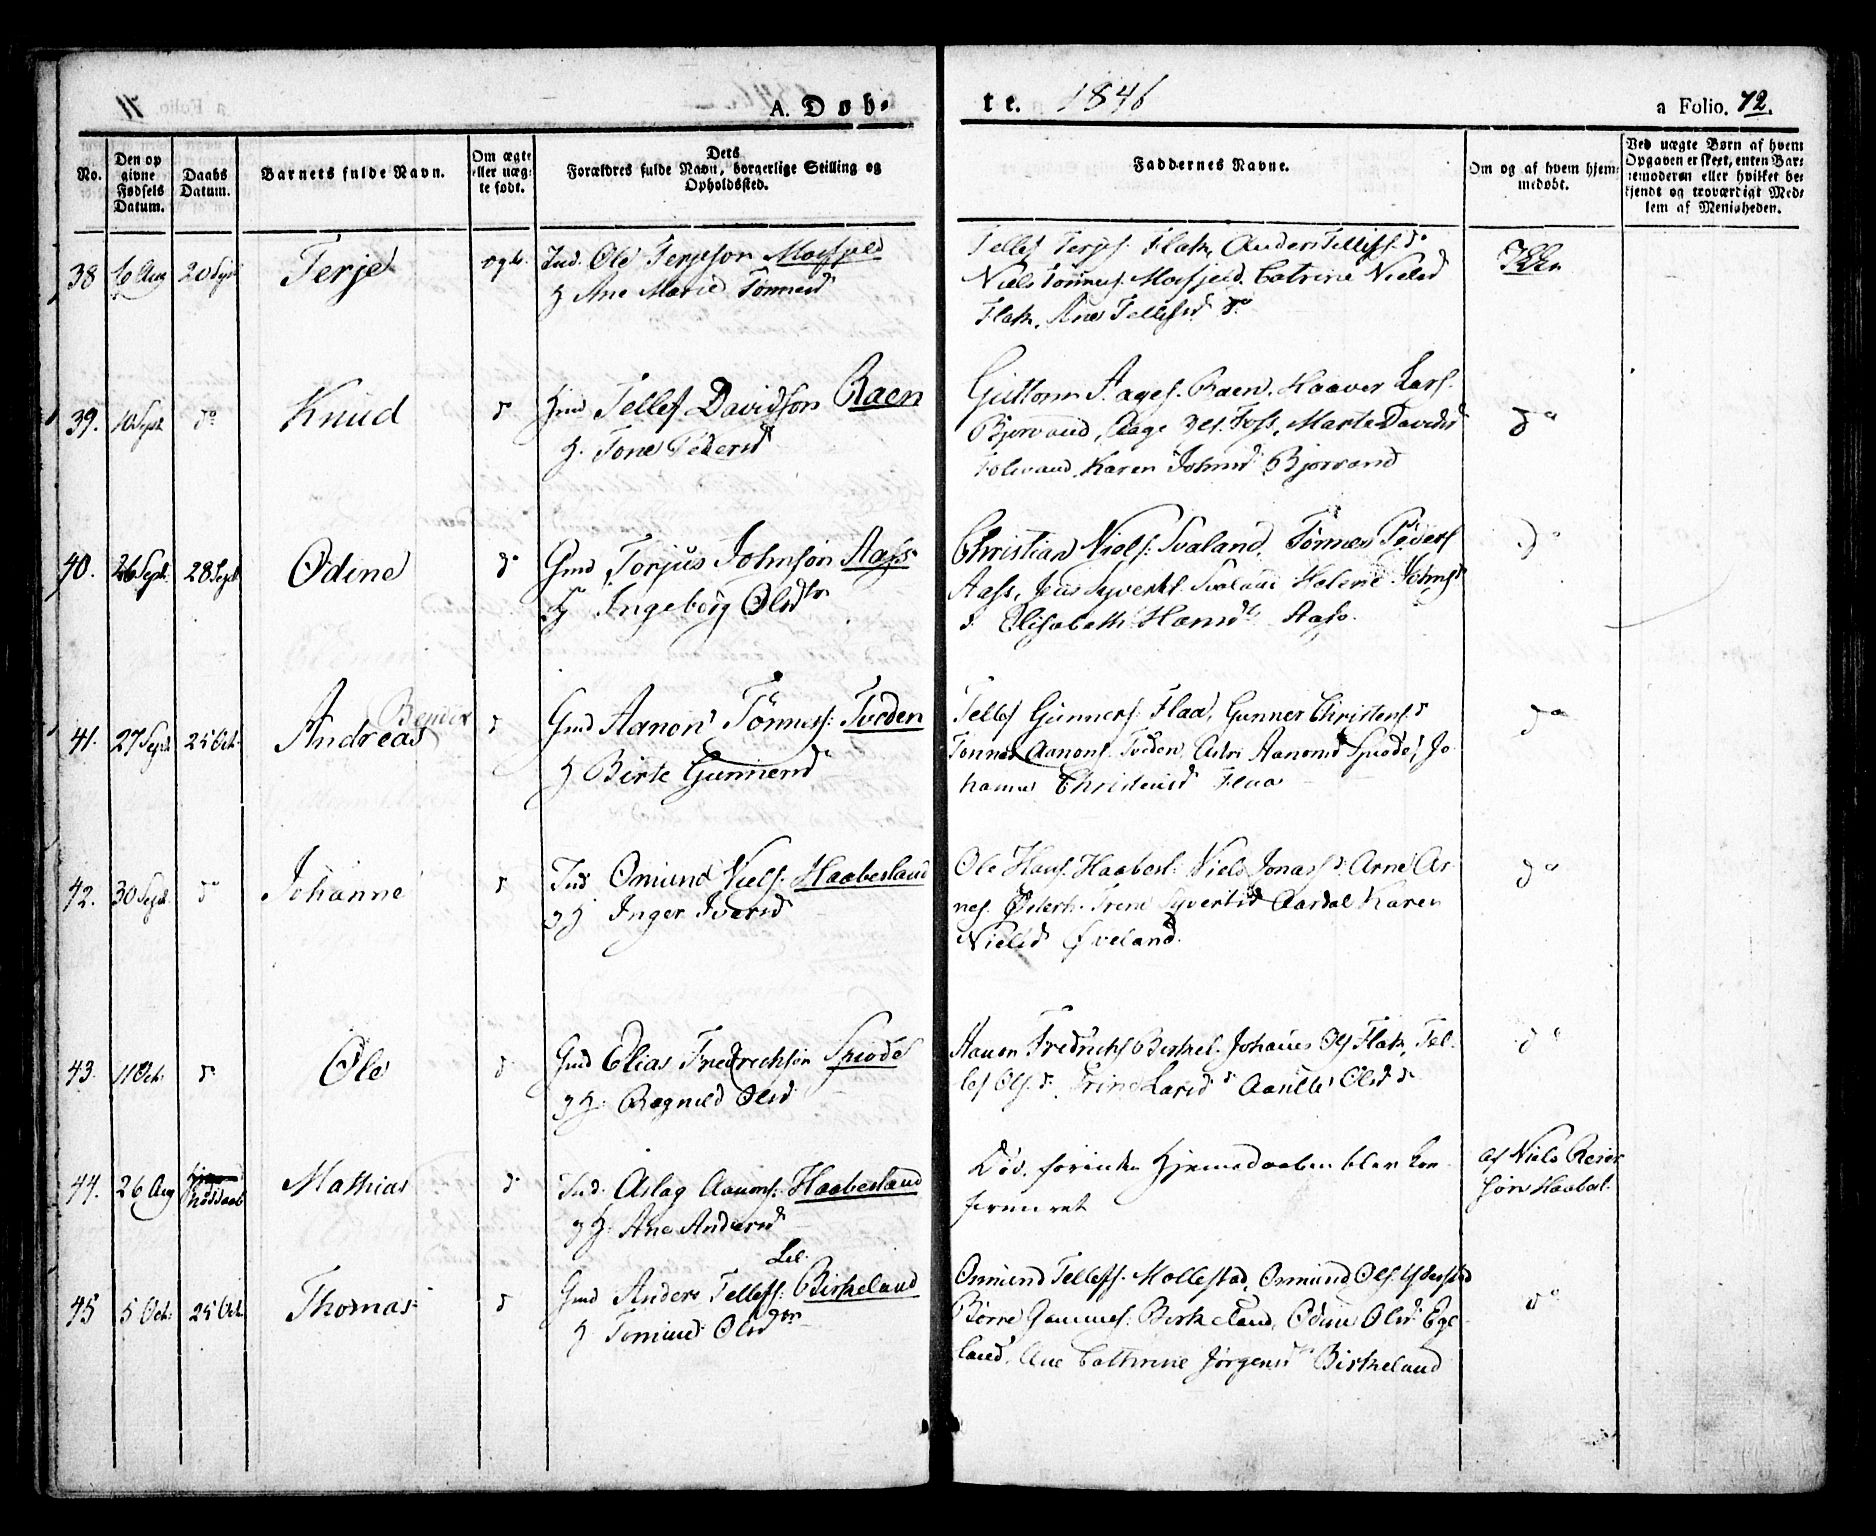 A. Døb-
te. 1846
a Folio. 72.
No.
Den op
givne
Fødsels
Datum.
Daabs
Datum.
Barnets fulde Navn.
Om ægte
eller uæg-
te født.
Dets
Forældres fulde Navn, borgerlige Stilling og
Opholdssted.
Faddernes Navne.
Om og af hvem hjem-
medøbt.
Ved uægte Børn af hvem
Opgaven er skeet, enten Bar-
nemoderen eller hvilket be-
kjendt og troværdigt Med-
lem af Menigheden.
38 6 Aug 20 Sept Terje ægte Ind. Ole Terjeson Mosfjeld
H Ane Marie Tønnesd
Tellef Terjes. Flak, Anders Tellefs. do
Niels Tønnes. Mosfjeld. Catrine Nielsd
Flak, Ane Tellefsd do
39. 10 Sept do Knud d Gmd Tellef Davidson Raen
H. Tone Pedersd
Guttorm Aages. Raen, Haaver Lars.
Bjorvand, Aage Foss, Marte Davidsd
Karen Johnsd Bjorvand
do
40. 26 Sept. 28 Sept Odine do Gmd Torjus Johnson Aass
H Ingeborg Olsdtr
Christian Niels: Svaland, Tønnes Peders
Aass, Jens Syverts. Svaland Helene Johnsd
d Elisabeth Hansd Aass.
do
41. 27 Sept 25 Oct. Andreas Bendix d Gmd Aanon Tønness: Tveden
H Birte Gunnersd
Tellef Gunners. Flaa, Gunner Christens. d
Tønnes Aanons. Tveden, Aanonsd Jo-
hanne Christensd Flaa
do
42. 30 Sept. do Johanne d Ind Omund Niels. Haabesland
H Inger Iversd
Ole Hans. Haabesl. Niels Jonas. d. Arne Ar-
nes. Østerh. Trine Syvertsd Aardal Karen
Nielsd Øveland.
do
43. 11 Oct. d. Ole d Gmd Elias Fredrichson
H. Ragnild Olsd
Aanon Fredrichs Birkel. Johannes Ols Flak, Tel-
lef Ols. d. Trine Larsd d Olsd d
do
44. 26 Aug Mathias d Ind. Aslag Aanons. Haabesland
H. Ane Andersd
Død, forinden Hjemedaaben blev kon-
firmeret
af Niels Reier-
søn Haabesl.
45 5 Oct. 25 Oct. Thomas d Gmd Anders Tellefs: Lil. Birkeland
H Tomine Olsdtr
Omund Tellefs. Mollestad, Omund Ols.
Børre Birkeland, Odine Olsd. Ege-
land, Ane Cathrine Jørgensd Birkeland
do